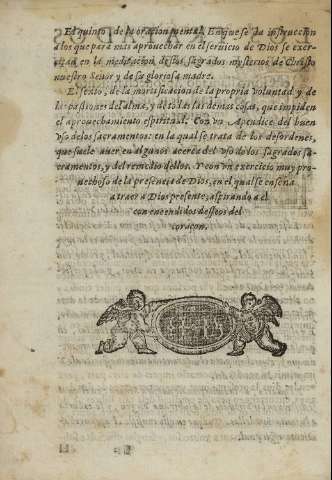 El quinto, de la oracion mental. En que se da instruccion
a los que para mas aprovechar en el seruicio de Dios se exer-
citan en la meditacion destos sagrados mysterios de Christo
nuestro Señor y de su gloriosa madre.
El sexto, de la mortificacion de la propria voluntad y de
las passiones del alma, y de todas las demas cosas, que impiden
el aprouechamiento espiritual. Con vn Apendice del buen
vso de los sacramentos: en la qual se trata de los desordenes,
que suele auer en algunos acerca del vso de los sagrados sa-
cramentos, y del remedio dellos. Y con vn exercicio muy pro-
uechoso de la presencia de Dios, en el qual se enseña
a traer a Dios presente, aspirando a el
con encendidos desseos del
coraçon.